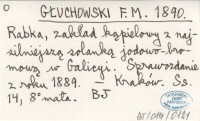 GŁUCHOWSKI F. M. 1890.
Rabka, zakład kąpielowy z naj-
silniejszą solanką jodowo-bro-
mową w Galicyi. Sprawozdanie
z roku 1889. Kraków. Ss.
14, 8° mała. BJ